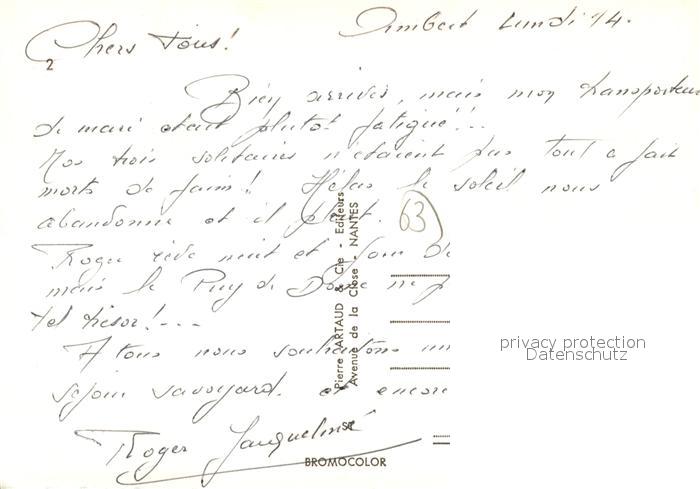 Ambert Lundi 14.
Chers tous!
2
Bien arrivés, mais mon transporteur
de mari était plutôt fatigué!...
Nos trois solitaires n'étaient pas tout à fait
morts de faim! Hélas le soleil nous
abandonne et il pleut.
63
Roger rêve nuit et jour de
mais le Puy de Dôme ne p
tel trésor!---
A tous nous souhaitons un
séjour savoyard. et encore
Roger Jacqueline
Pierre ARTAUD & Cie - Editeurs
Avenue de la Close - NANTES
privacy protection
Datenschutz
BROMOCOLOR